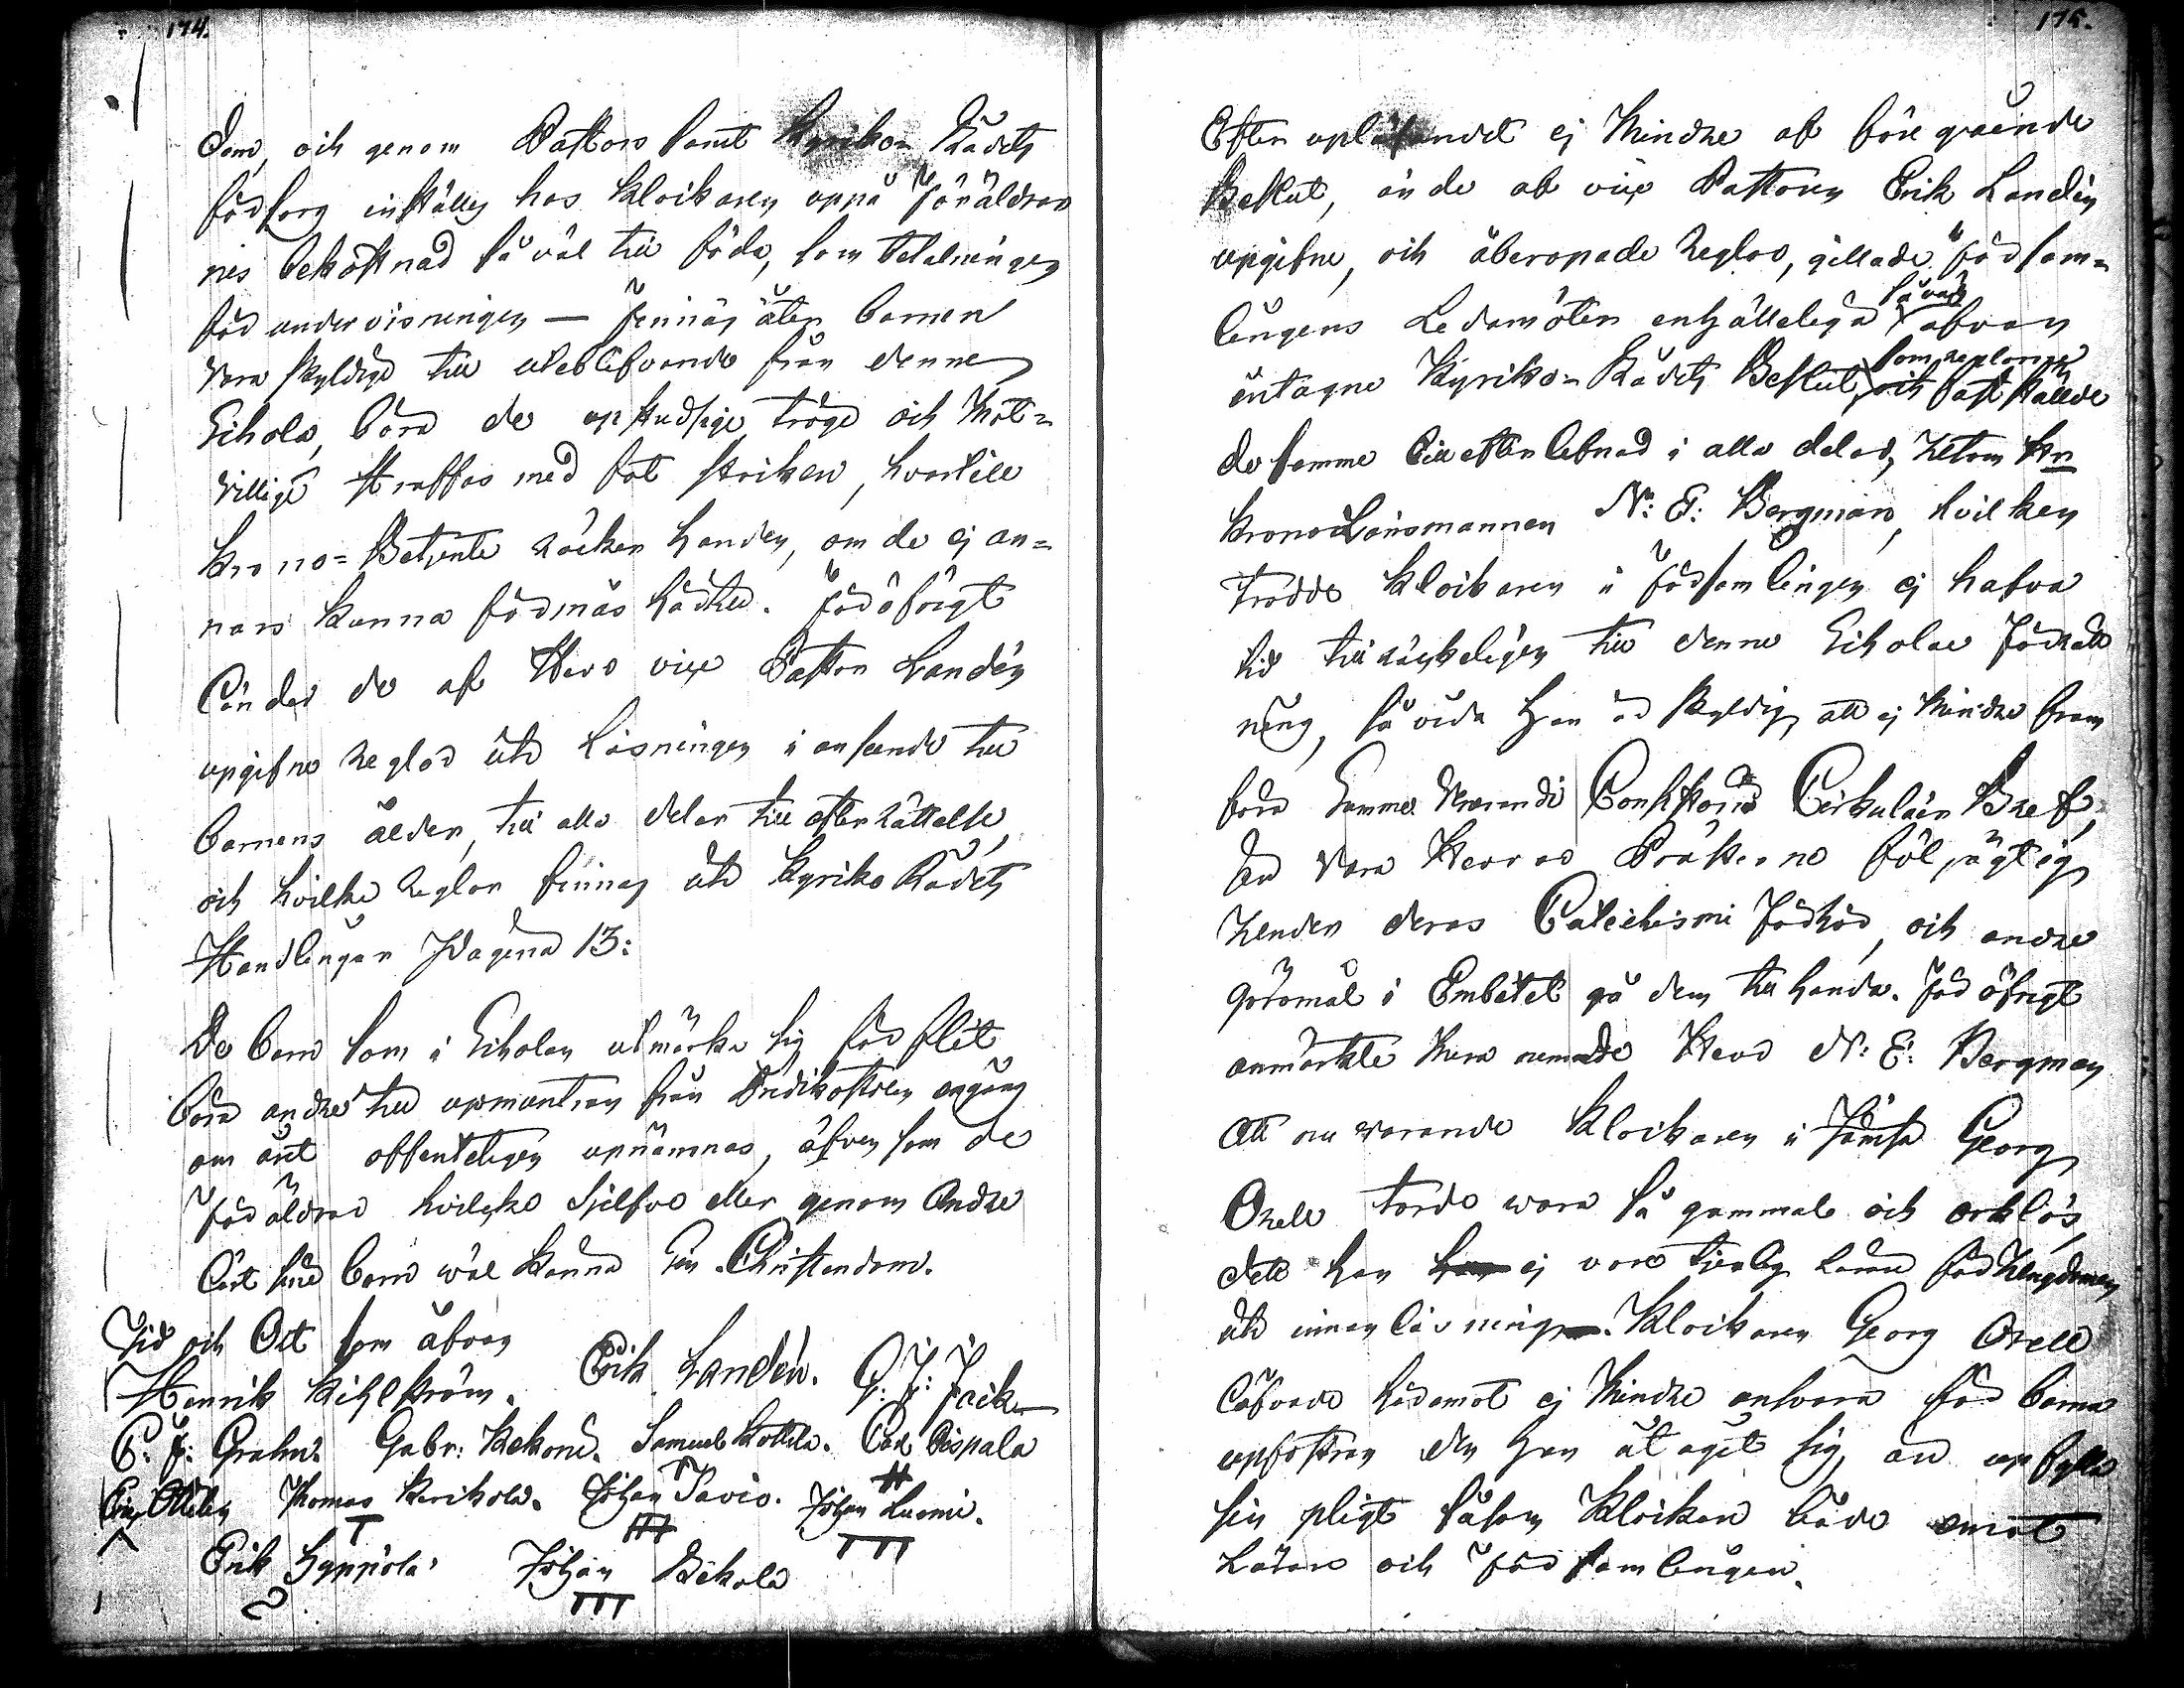 174.
Dom, och genom Pastors samt Kyrko- Rådets
försorg inställes hos Klockaren uppå Föräldrar
nes bekostnad så väl till föda, som betalningen
för undervisningen — Finnas åter barnen
vara skyldige till uteblifvande från denne
Schola, böra de upstudsige tröge och Mot-
villige straffas med fat stocken, hvartill
Krono= Betjente räcker handen, om de ej an-
nars kunna förmås härtill. För öfrigt
länder de af Herr vice Pastor Landén
upgifne reglor uti läsningen i anseende till
barnens ålder, till alla delar till efterrättelse,
och hvilka reglor finnas uti Kyrko Rådets
Handlingar Pagina 13:
De barn som i Scholan utmärka sig för flit
böra andre till upmuntran från Predikostolen en gång
om året offenteligen upnämnas, äfven som de
Föräldrar hvilka sjelfve eller genom Andre
lärt sine barn wäl kunna sin Christendom.
Tid och Ort som åfvan
Henrik Kihlström. Erik Landén. G: J: Frick
C. F: Grahn. Gabr: Kekoni. Samuel Kottila. Carl Pispala
Thomas Kerikola. Johan Savio. Johan Luomi.
Erik Hyppiölä Johan Kekola
175.
Efter upläsandet ej Mindre af före gående
Beslut, än de af vice Pastorn Erik Landén
upgifne, och åberopade reglor, gillade Försam-
lingens Ledamöter enhälleligen såväl åfvan
intagne Kyrko= Rådets Beslut, som reglorne, och fastställde
de samme till efterlefnad i alla delar, utom
Krono Länsmannen N: E: Bergman, hvilken
trodde Klockaren i Församlingen ej hafva
tid tillräckeligen till denne Scholæ Förrätt
ning, så vida han är skyldig att ej Mindre fram
föra Domme Havande Consistorii Cirkulair Bref,
än vara Herrar Prästerne följagtig
under deras Catechismi Förhör, och andre
göromål i Embetet gå dem till handa. För öfrigt
anmärkte Herr nemnde Herr N: E: Bergman
att nu warande Klockaren i Församl. Georg
Orell torde wara så gammal och orklös,
att han ej vore tjenlig Lärare för Ungdomen
uti innanläsning. Klockaren Georg Orell
låfvade häremot ej Mindre ansvara för barna
upfostran den han åtagit sig, än upfylla
sin pligt såsom Klockare både emot
Lärare och Församlingen.